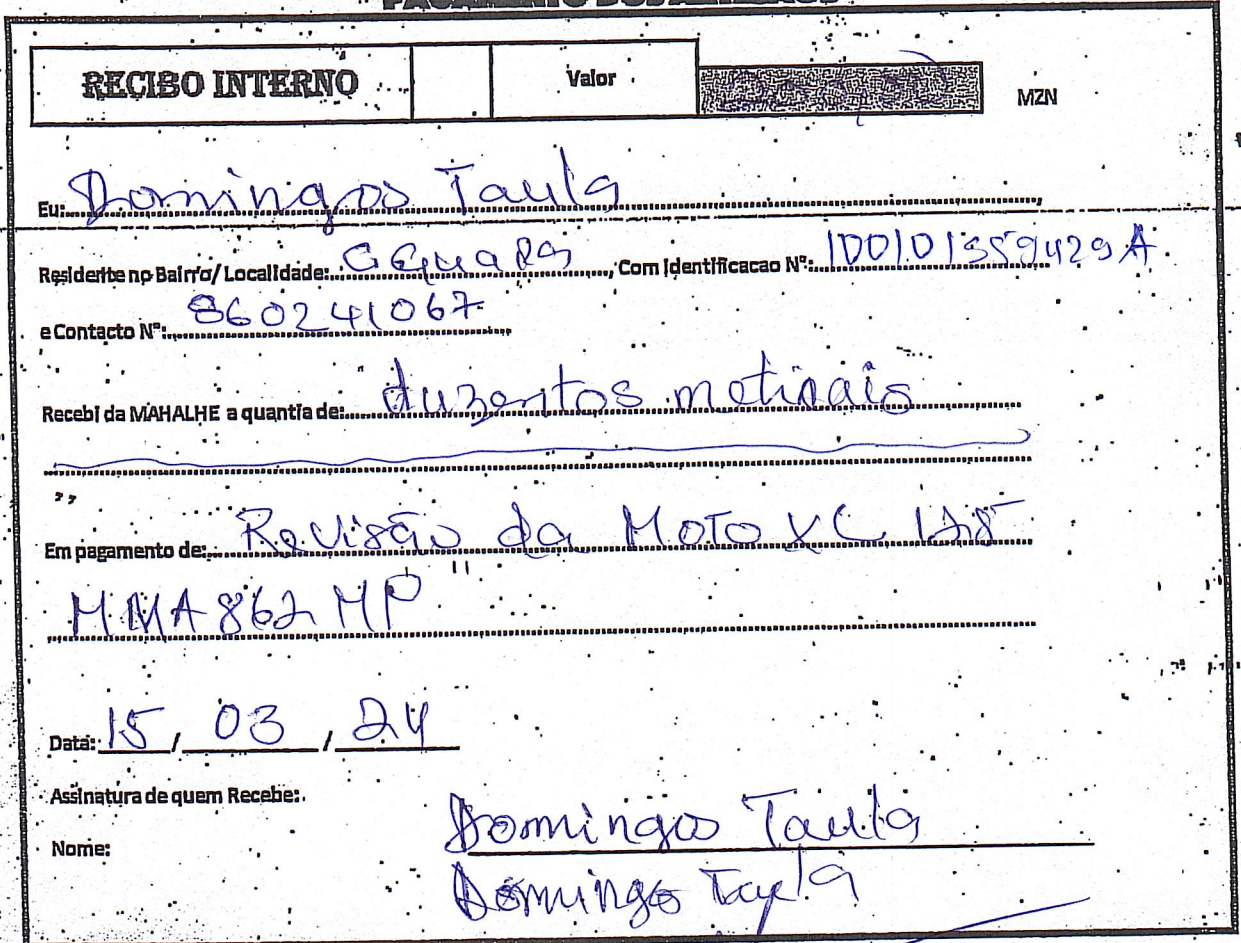 RECIBO INTERNO Valor MZN
Eu: Domingos Taula,
Residente no Bairro/ Localidade: , Com Identificacao Nº:
e Contacto Nº: 860241067
Recebi da MAHALHE a quantia de: duzentos meticais
Em pagamento de: Revisão da Moto XL 125
MMA862MP
Data: 15 / 03 / 24
Assinatura de quem Recebe: Domingos Taula
Nome: Domingo Taula